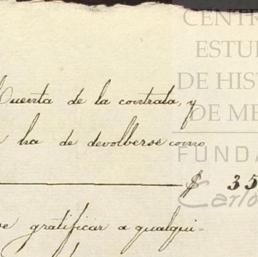 CENTR
ESTU
DE HIS
DE ME
FUNDA
Carlo
Cuenta de la contrata, y
ha de devolberse como
$ 35
gratificar a qualqui-